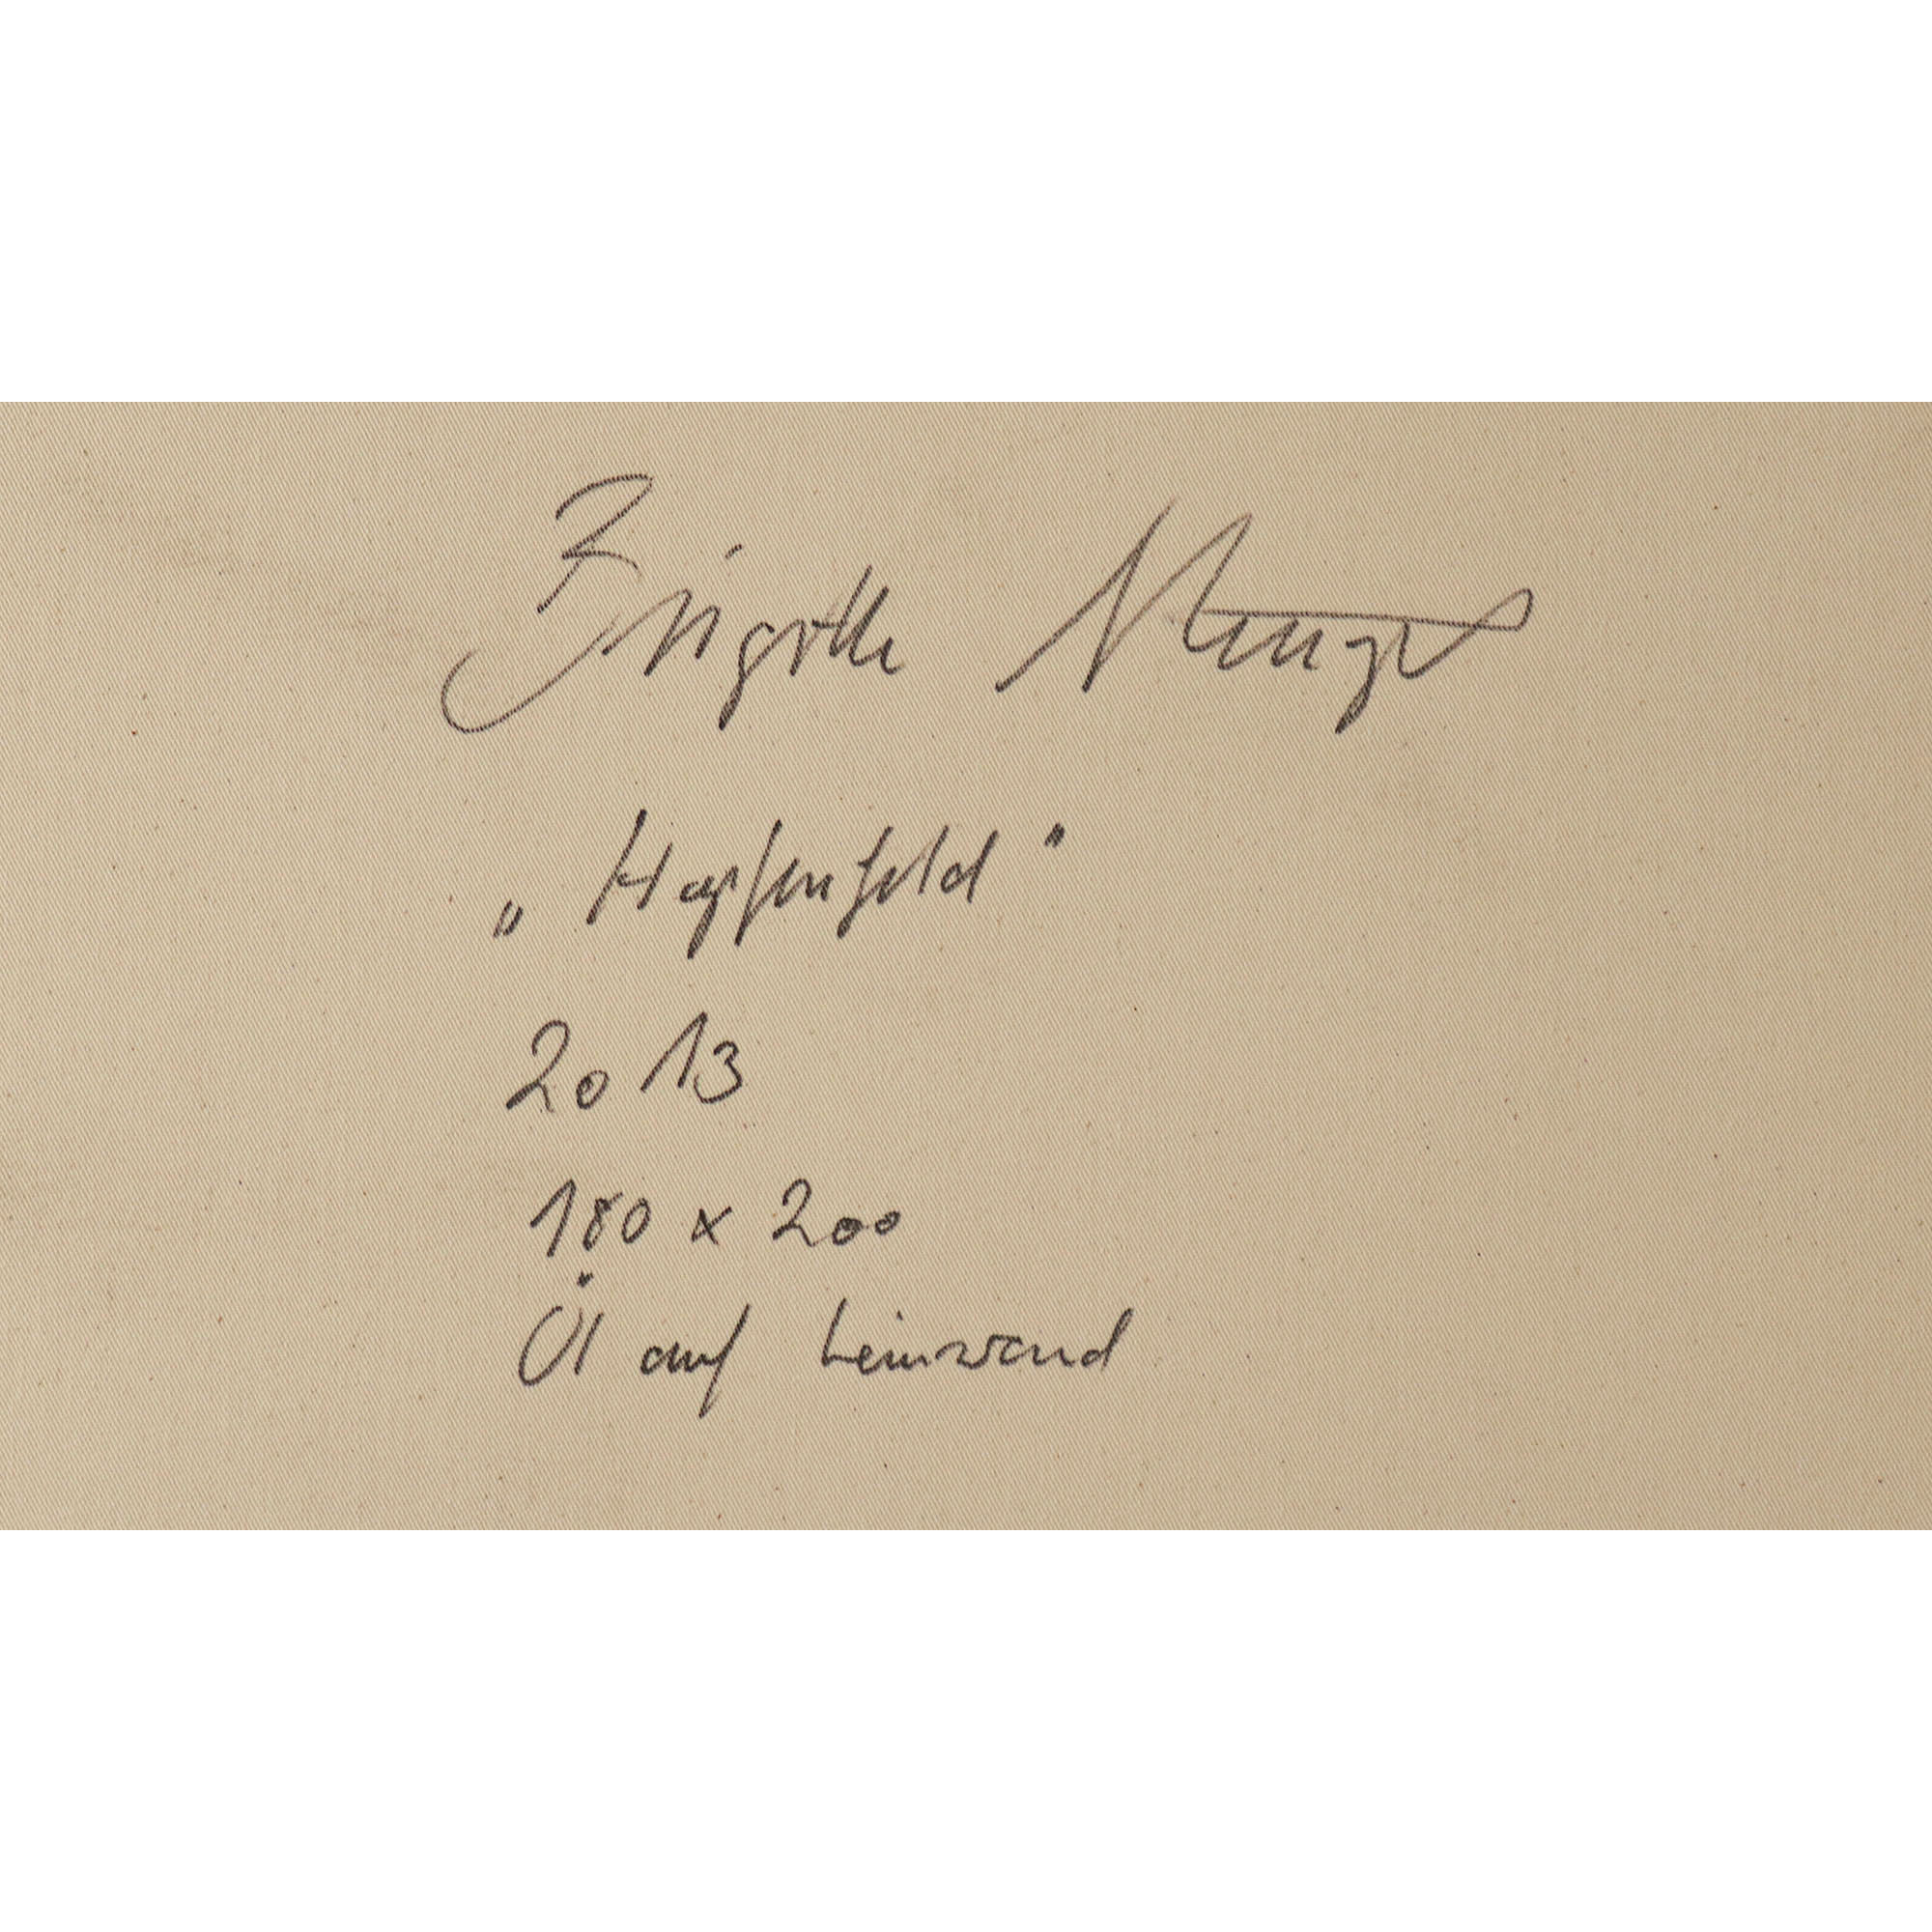 Brigitte
„Hopfenfeld"
2013
180 x 200
Öl auf Leinwand